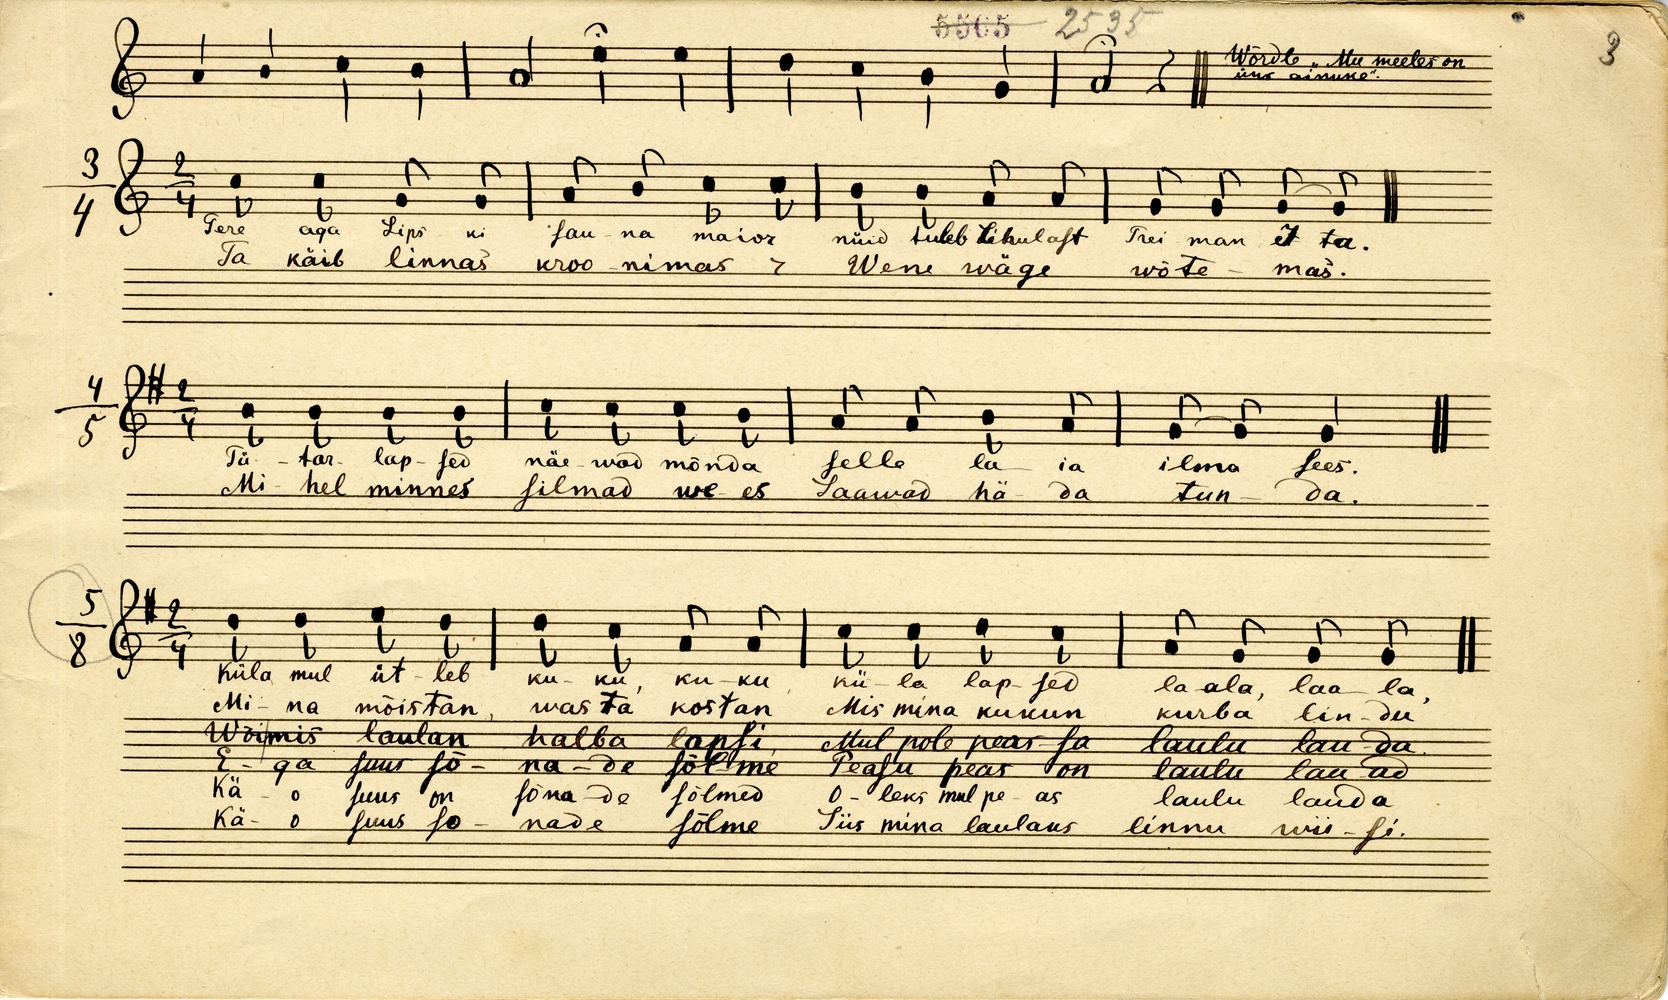 5505 2535
3
Wõrdle „Mu meeles on
üks ainuke".
3
4
2
4
Tere aga Lips ki sau-na maior nüid tuleb Lihulast Trei man it ta.
Ta käib linnas kroo-nimas ? Wene wäge wõte-mas.
4
5
2
4
Tü-tar-lap-sed näe-wad mõnda selle la-ia ilma sees.
Mi-hel minnes silmad we-es Saawad hä-da tun-da.
5
8
2
4
Küla mul üt-leb ku-ku, ku-ku, kü-la lap-sed la-ala, laa-la,
Mi-na mõistan, wasta kostan Mis mina kukun kurba lin-du
Wõimis laulan halba lapsi, Mul pole peas-sa laulu lau-da.
E-ga suus sõ-na-de sõl-me Peasu peas on laulu lau-ad
Kä-o suus on sõna-de sõlmed O-leks mul pe-as laulu lauda
Kä-o suus so-nade sõlme Siis mina laulaks linnu wii-si.